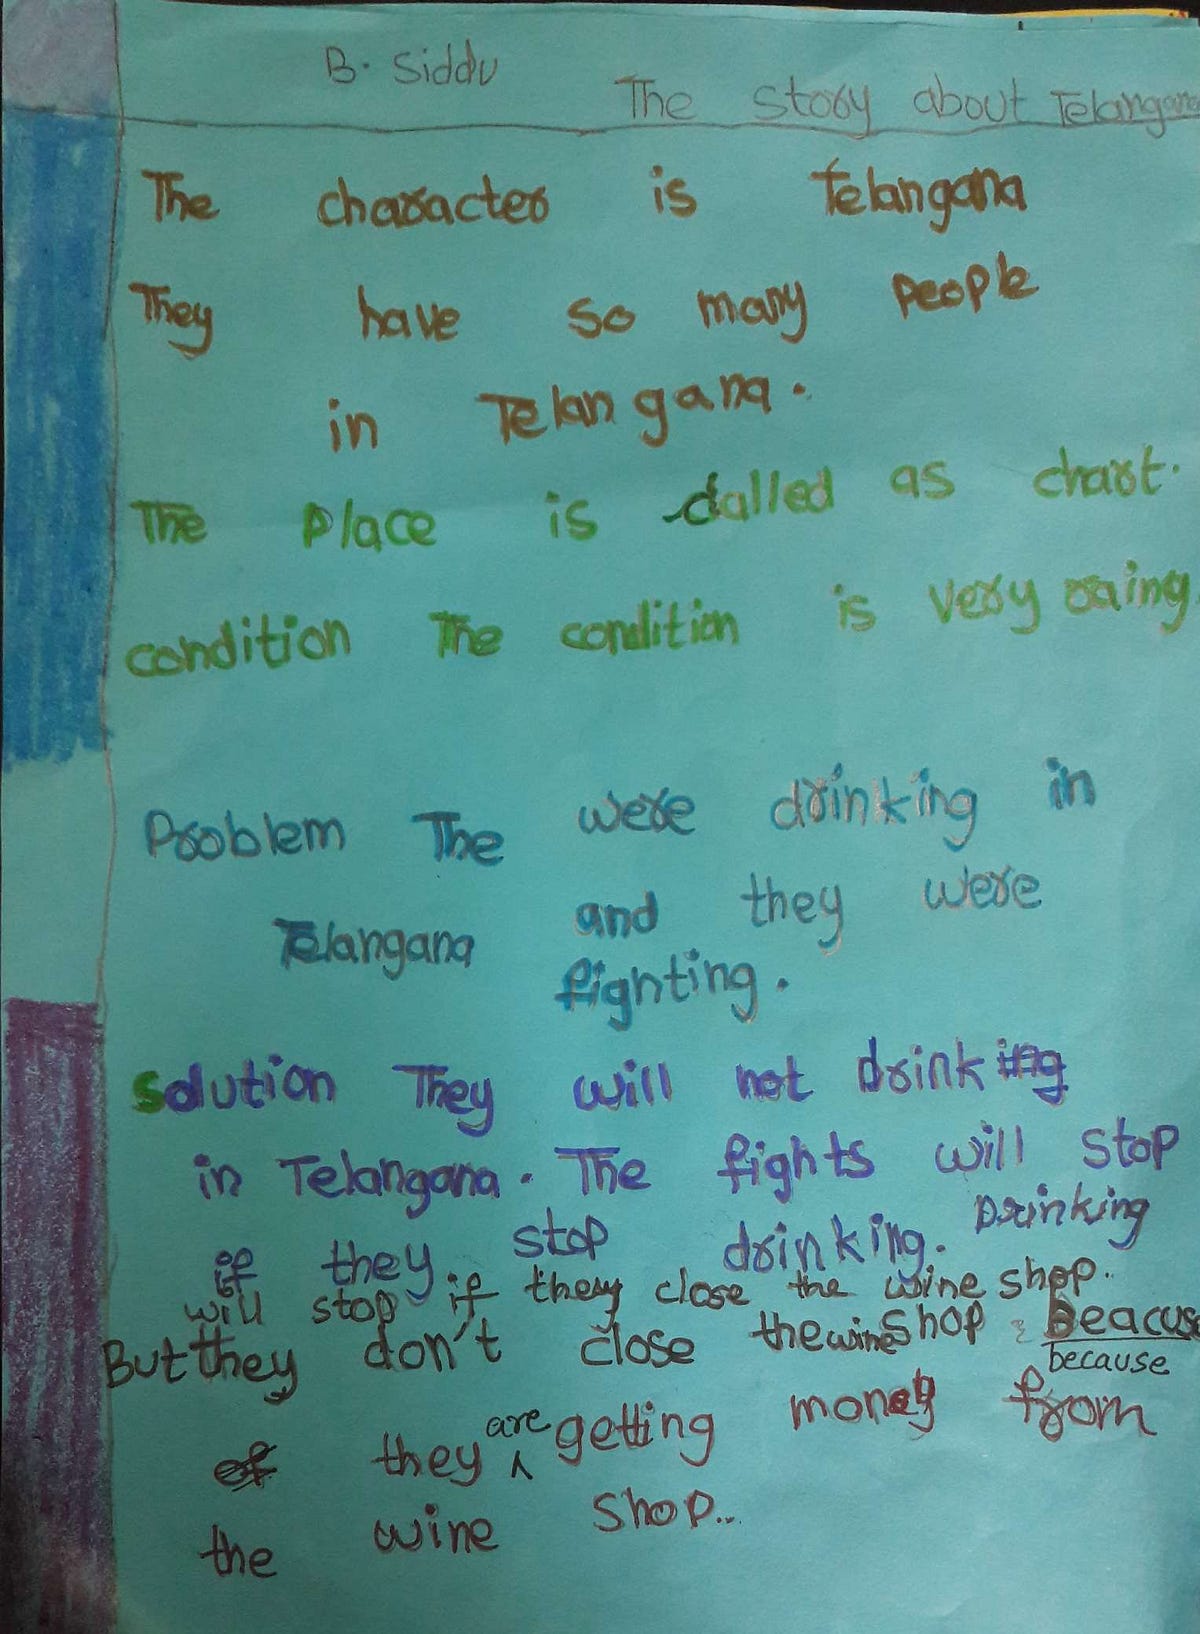 B. Siddu
The story about Telangana
The character is Telangana
They have so many people
in Telangana.
The place is dalled as chart.
condition The condition is very raing.
Problem The were drinking in
Telangana and they were
fighting.
Solution They will not drinking
in Telangana. The fights will stop
if they stop drinking. Drinking
will stop if they close the wine shop.
But they don't close the wine shop Beacuse
because
of they are getting money from
the wine shop..